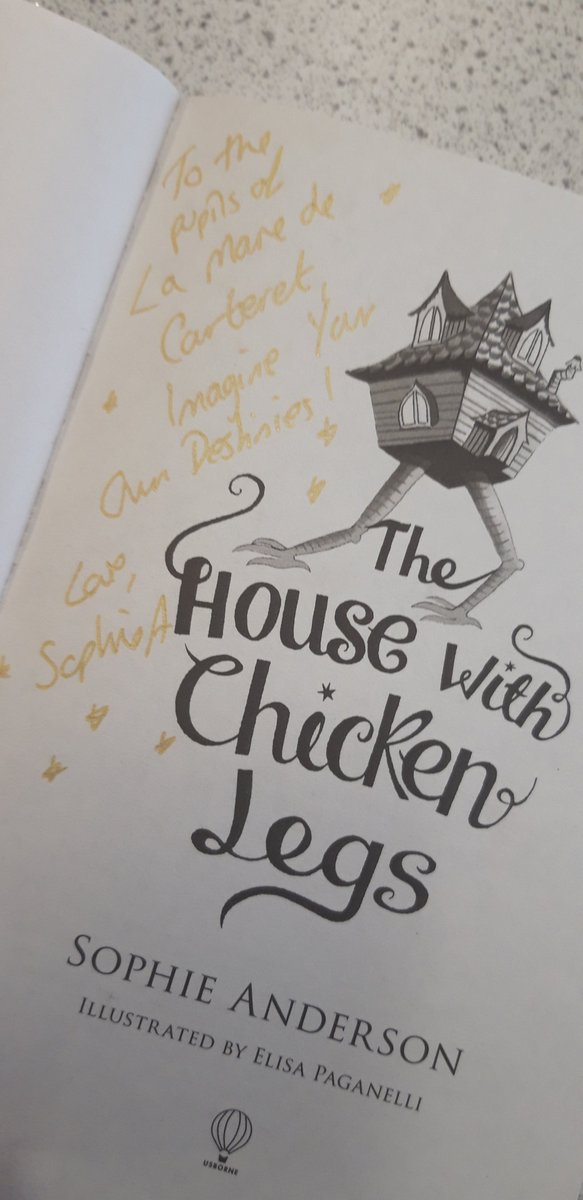 To the
pupils of
La Mare de
Carteret,
Imagine Your
Own Destinies!
Love,
Sophie A
The
House With
Chicken
Legs
SOPHIE ANDERSON
ILLUSTRATED BY ELISA PAGANELLI
USBORNE